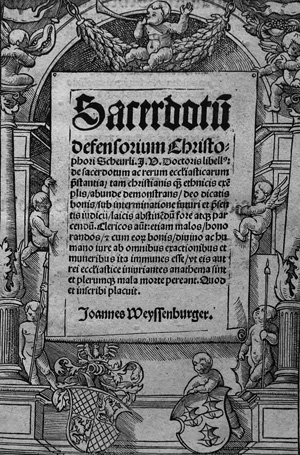 Sacerdotū
defensorium Christo-
phori Scheurli. J. V. Doctoris libellꝰ:
de sacerdotum ac rerum ecclesiasticarum
p̄stantia: tam christianis q̄ ethnicis exē
plis/abunde demonstrans/deo dicatis
bonis/sub interminatione futuri et p̄sen
tis iudicii/laicis abstinēdū fore atqꝫ par
cendū. Clericos aūt: etiam malos/hono
randos/⁊ cum eoꝝ bonis/diuino ac hu
mano iure ab omnibus exactionibus et
muneribus ita immunes esse/vt eis aut
rei ecclesiastice iniuriantes anathema sint
et plerumqꝫ mala morte pereant. Quod
et inscribi placuit.
Joannes Weyssenburger.